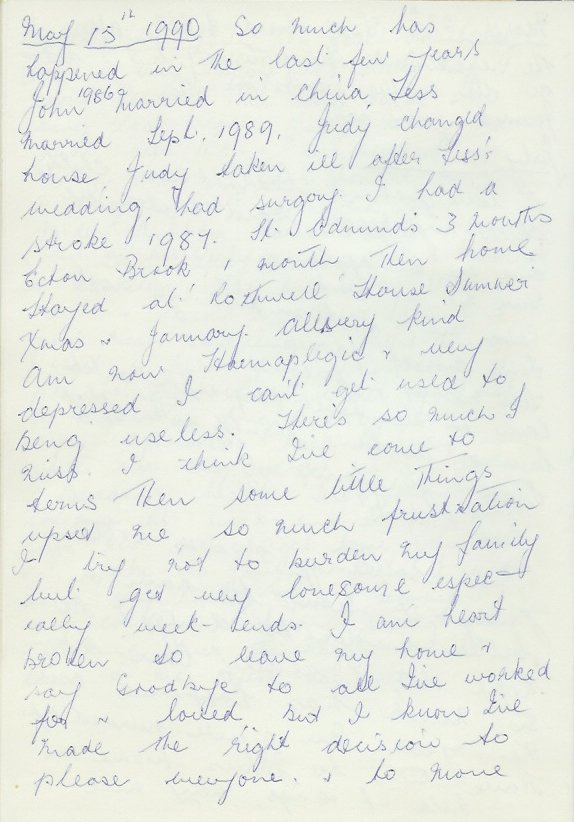 May 15th 1990 So much has
happened in the last few years
John 1986 married in China Tess
married Sept. 1989. Judy changed
house Judy taken ill after Tess's
wedding, had surgory. I had a
stroke 1987. St. Edmunds 3 months
Ecton Brook 1 month Then home
Stayed at Rothwell House Summer
Xmas & January. All very kind
Am now Haemaplegic & very
depressed I can't get used to
being useless. There's so much I
miss. I think I've come to
terms Then some little Things
upset me so much frustration
I try not to burden my family
but get very lonesome espec-
ially week-ends. I am heart
broken to leave my home &
say Goodbye to all I've worked
for & loved but I know I've
made the right decision to
please everyone. & to move